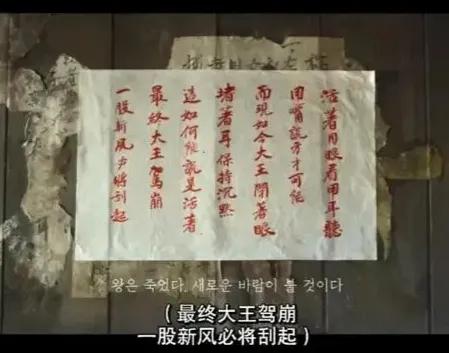 活著用眼看用耳聽
用嘴說方才可能
而現如今大王閉著眼
堵著耳保持沉默
這如何能說是活著
最終大王駕崩
一股新風必將刮起
왕은 죽었다. 새로운 바람이 불 것이다
（最终大王驾崩
一股新风必将刮起）